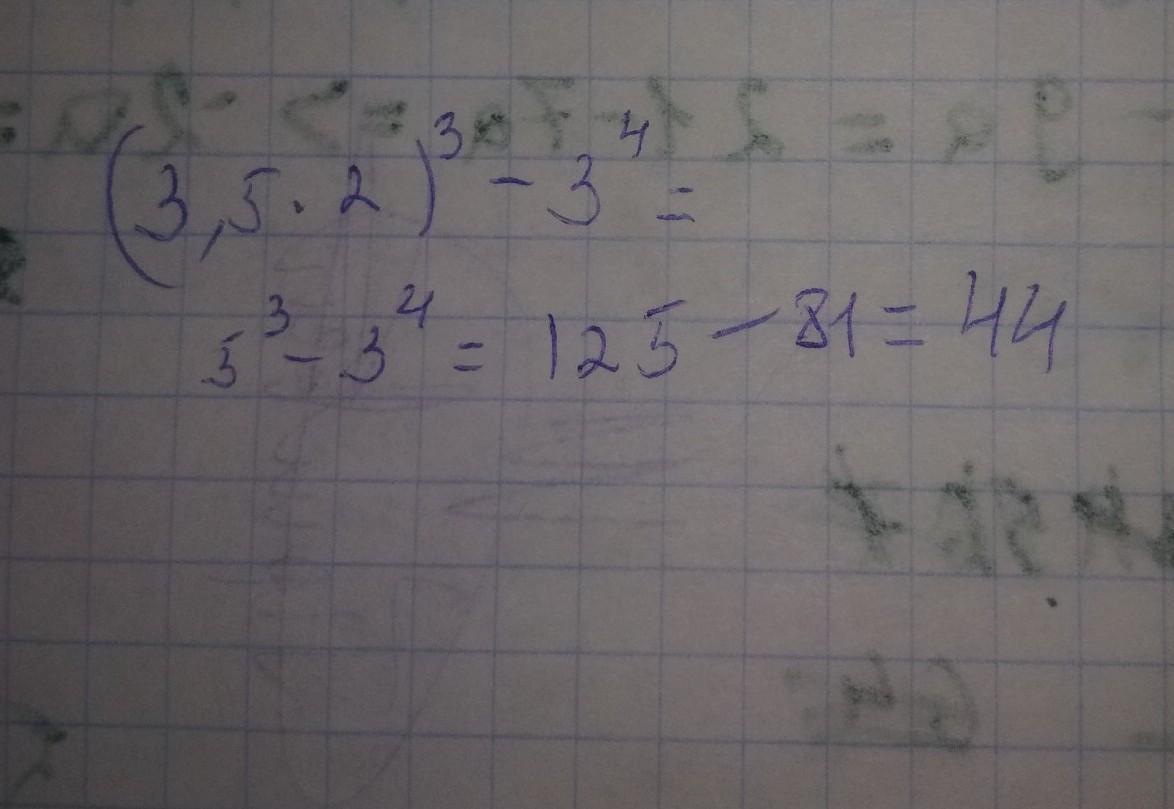 (3,5·2)³ - 3⁴ =
5³ - 3⁴ = 125 - 81 = 44